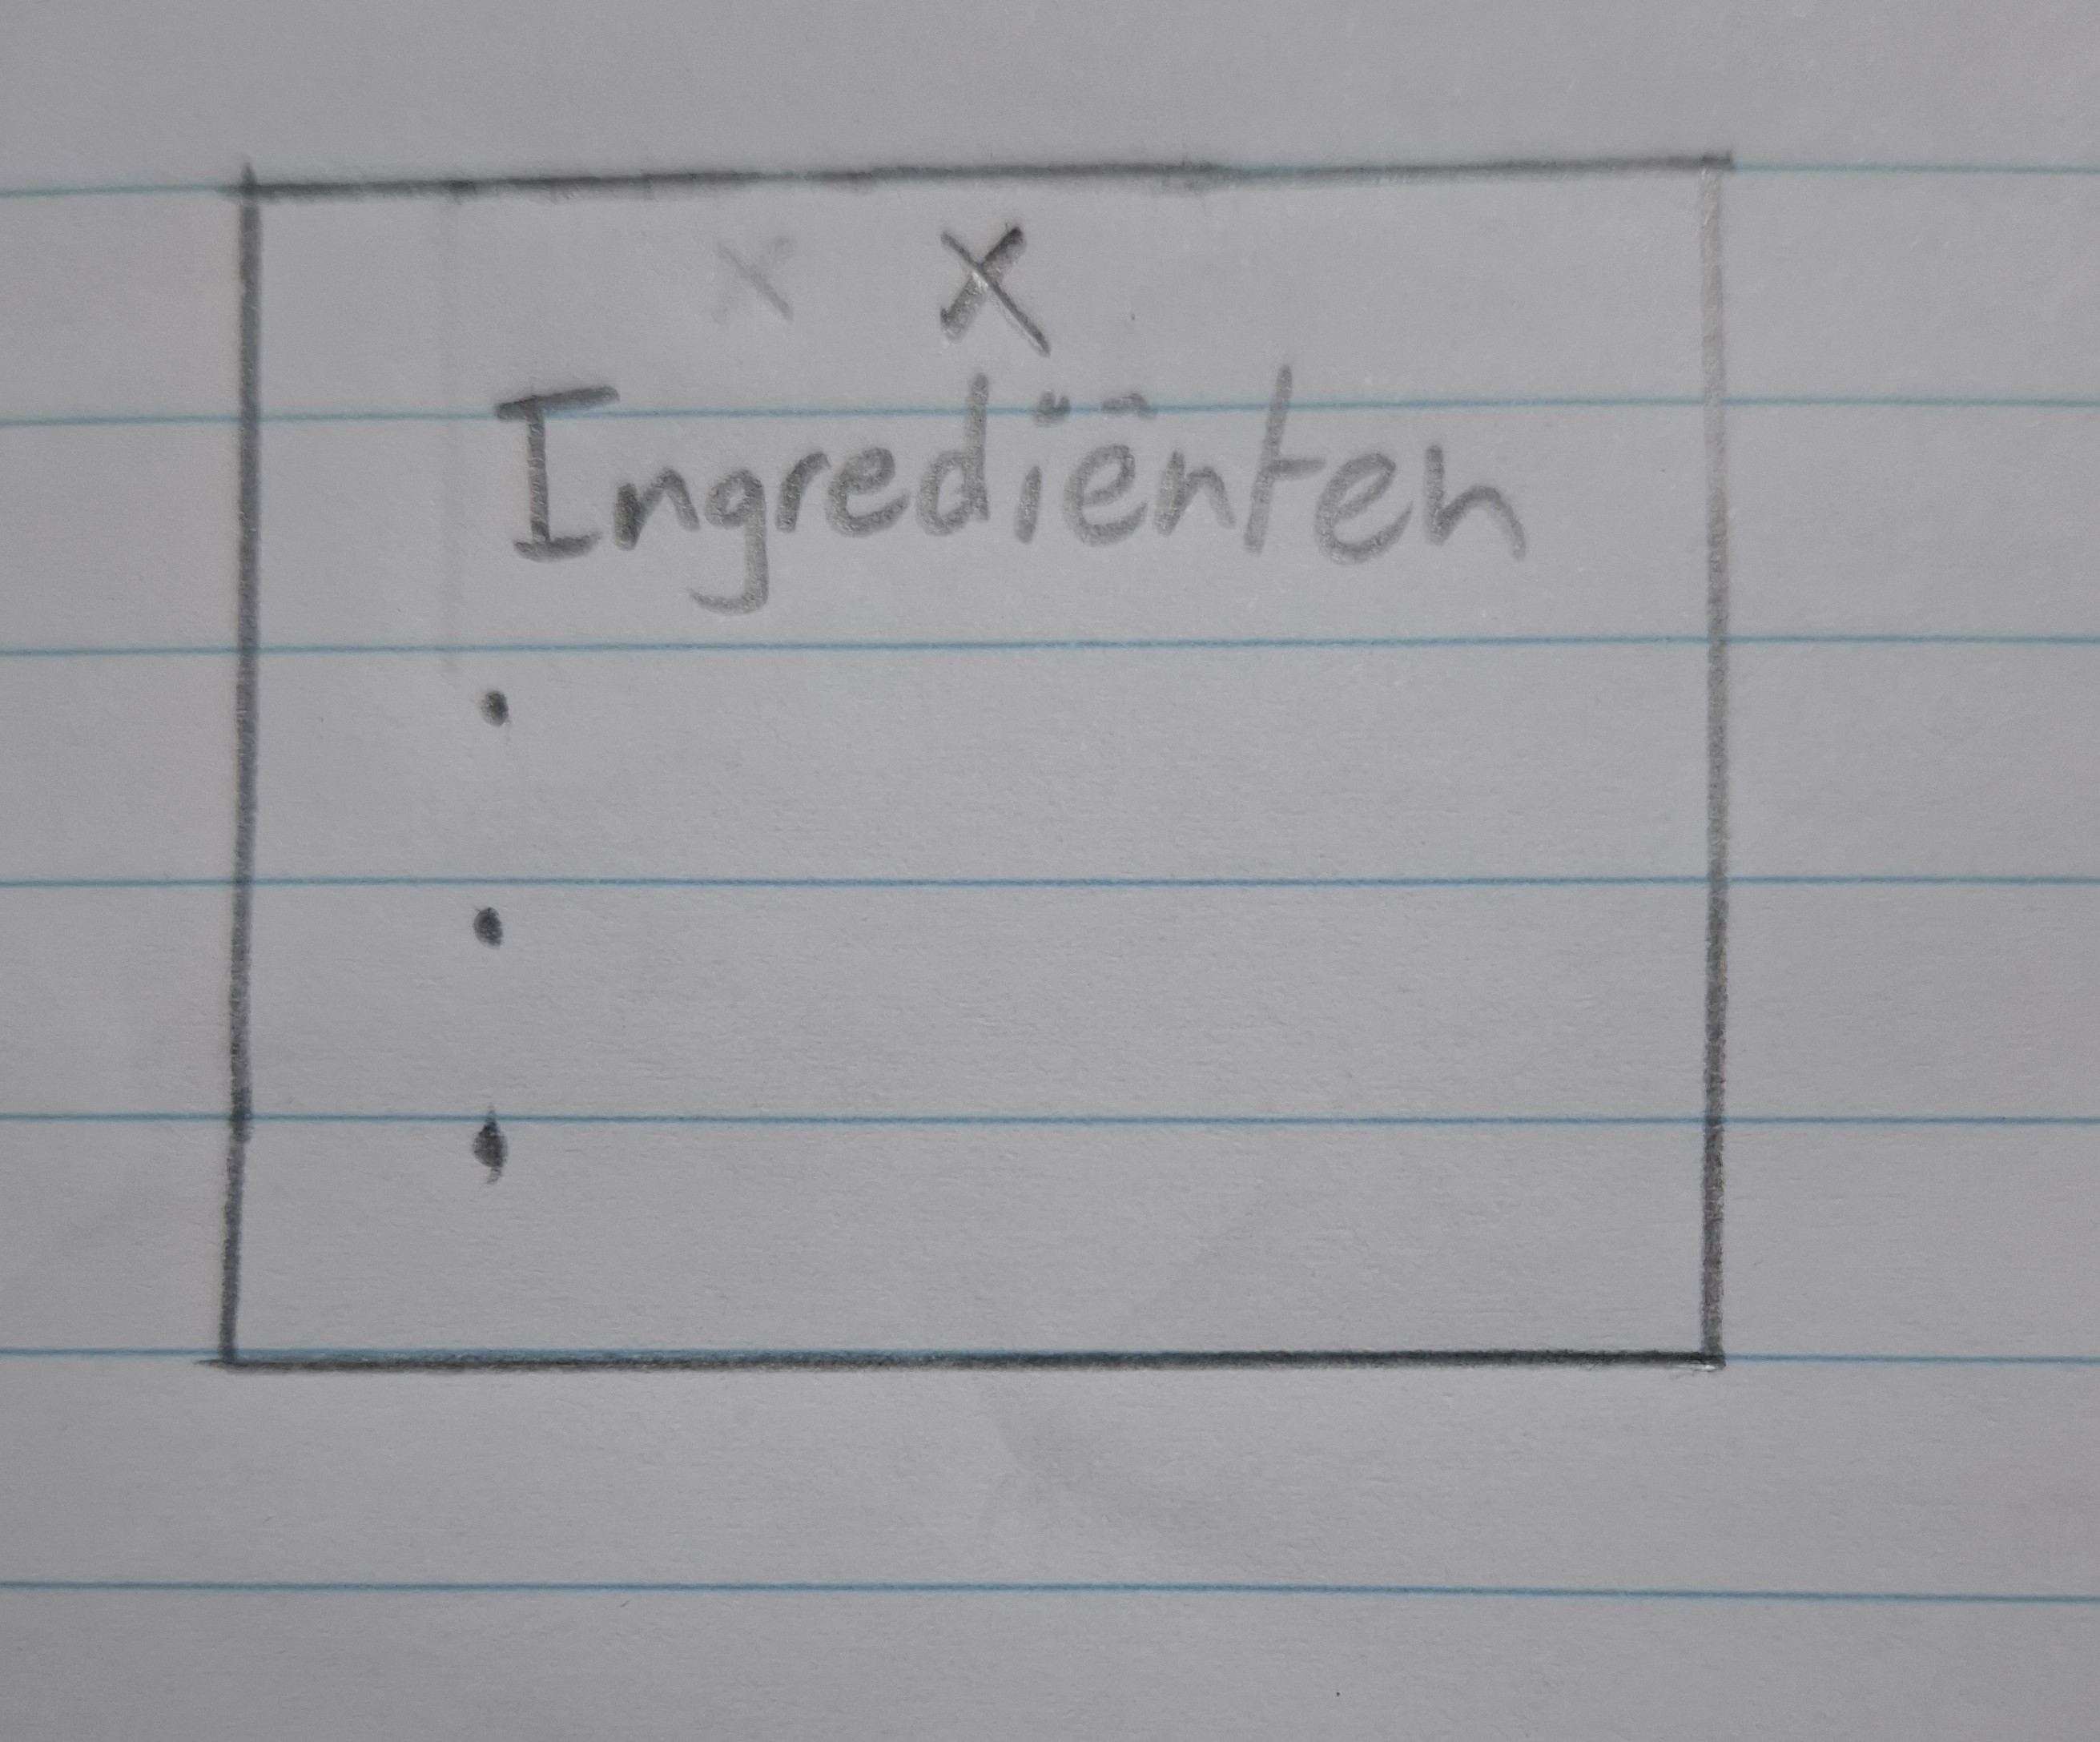 x
Ingrediënten
•
•
•